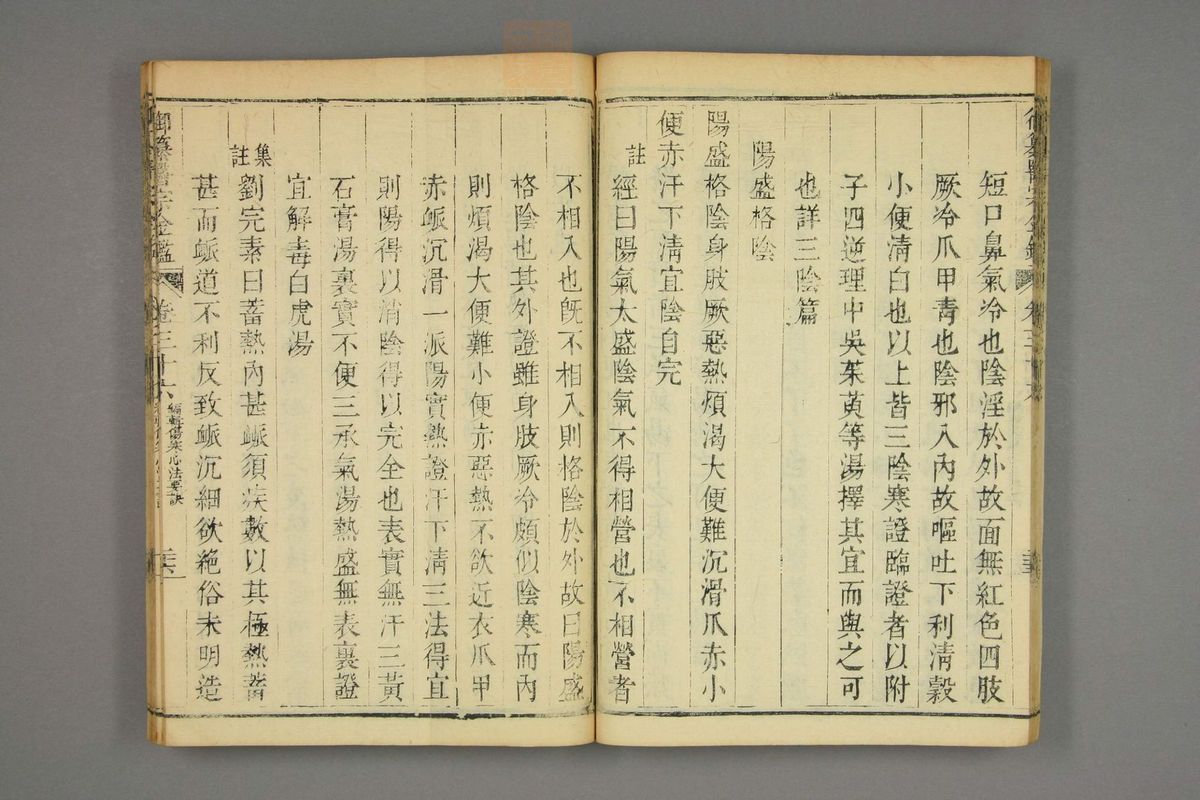 短口鼻氣冷也陰淫於外故面無紅色四肢
厥冷爪甲青也陰邪入內故嘔吐下利清穀
小便清白也以上皆三陰寒證臨證者以附
子四逆理中吳茱萸等湯擇其宜而與之可
也詳三陰篇
陽盛格陰
陽盛格陰身肢厥惡熱煩渴大便難沉滑爪赤小
便赤汗下清宜陰自完
註 經曰陽氣太盛陰氣不得相營也不相營者
不相入也旣不相入則格陰於外故曰陽盛
格陰也其外證雖身肢厥冷頗似陰寒而內
則煩渴大便難小便赤惡熱不欲近衣爪甲
赤䘑沉滑一派陽實熱證汗下清三法得宜
則陽得以消陰得以完全也表實無汗三黃
石膏湯裏實不便三承氣湯熱盛無表裏證
宜解毒白虎湯
集註 劉完素曰蓄熱內甚䘑須疾數以其極熱蓄
甚而䘑道不利反致䘑沉細欲絕俗未明造
御纂醫宗金鑑 卷三十六 編輯傷寒心法要訣